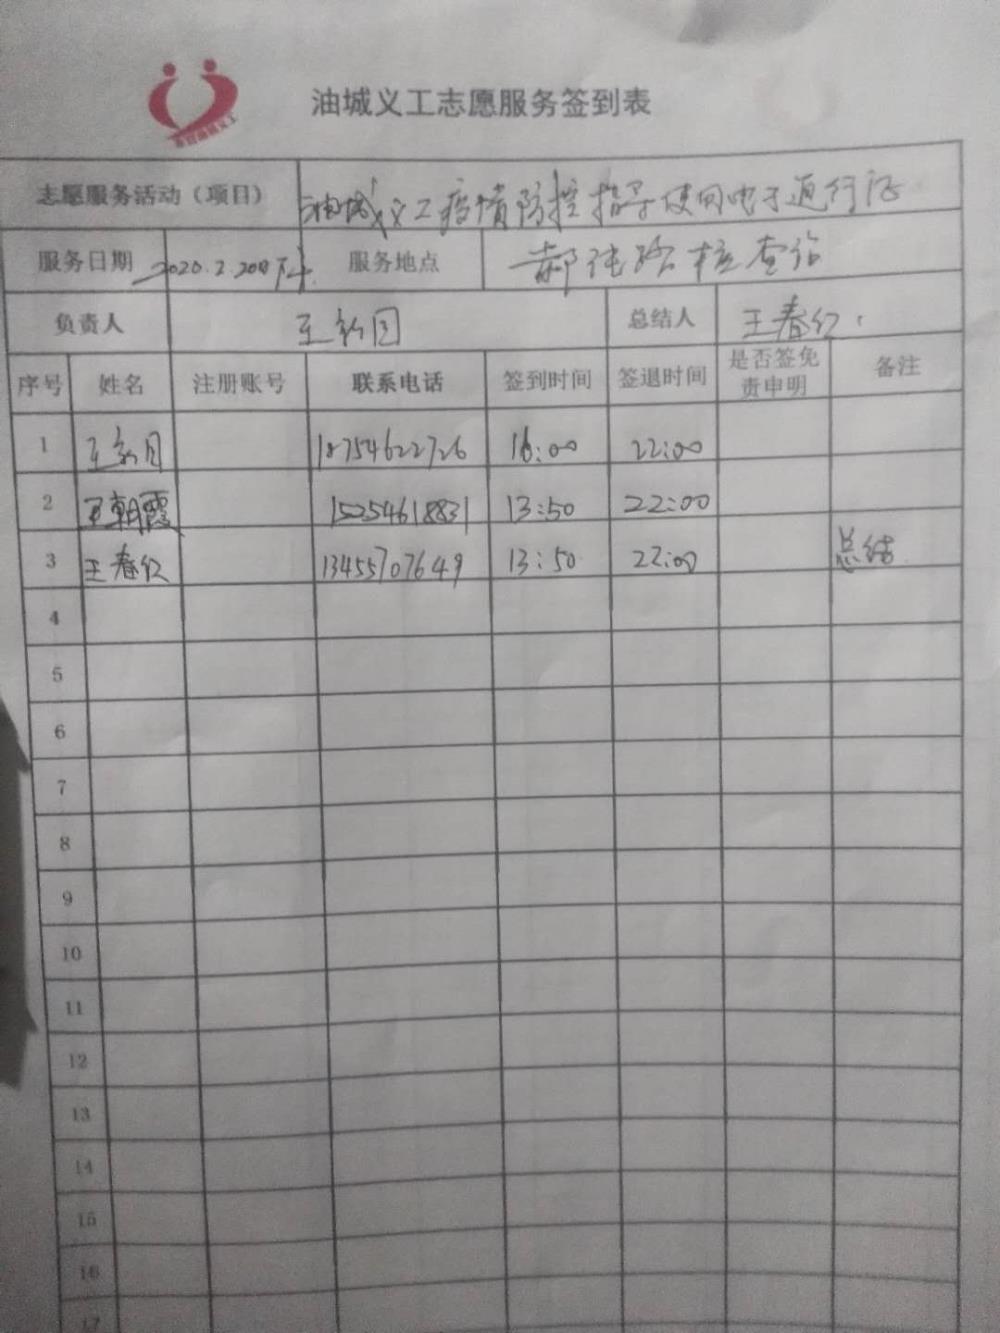 油城义工志愿服务签到表
志愿服务活动（项目） 油城义工疫情防控指导使用电子通行证
服务日期 2020.2.20 下午 服务地点 郝纯路检查站
负责人 王新月 总结人 王春红
序号 姓名 注册账号 联系电话 签到时间 签退时间 是否签免责申明 备注
1 王新月 18754622726 16:00 22:00
2 王朝霞 15254618831 13:50 22:00
3 王春红 13455707649 13:50 22:00 总结
4
5
6
7
8
9
10
11
12
13
14
15
16
17